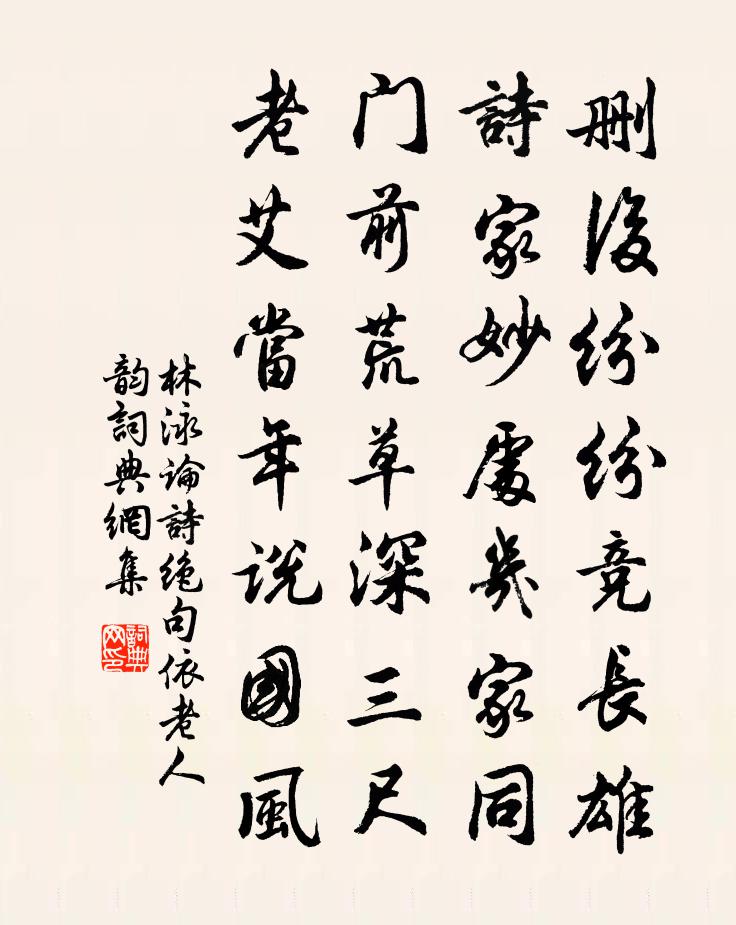 删後紛紛竞長雄
詩家妙處幾家同
门前荒草深三尺
老艾當年説國風
林泳論詩絶句依老人
韵詞典網集
詞典网印